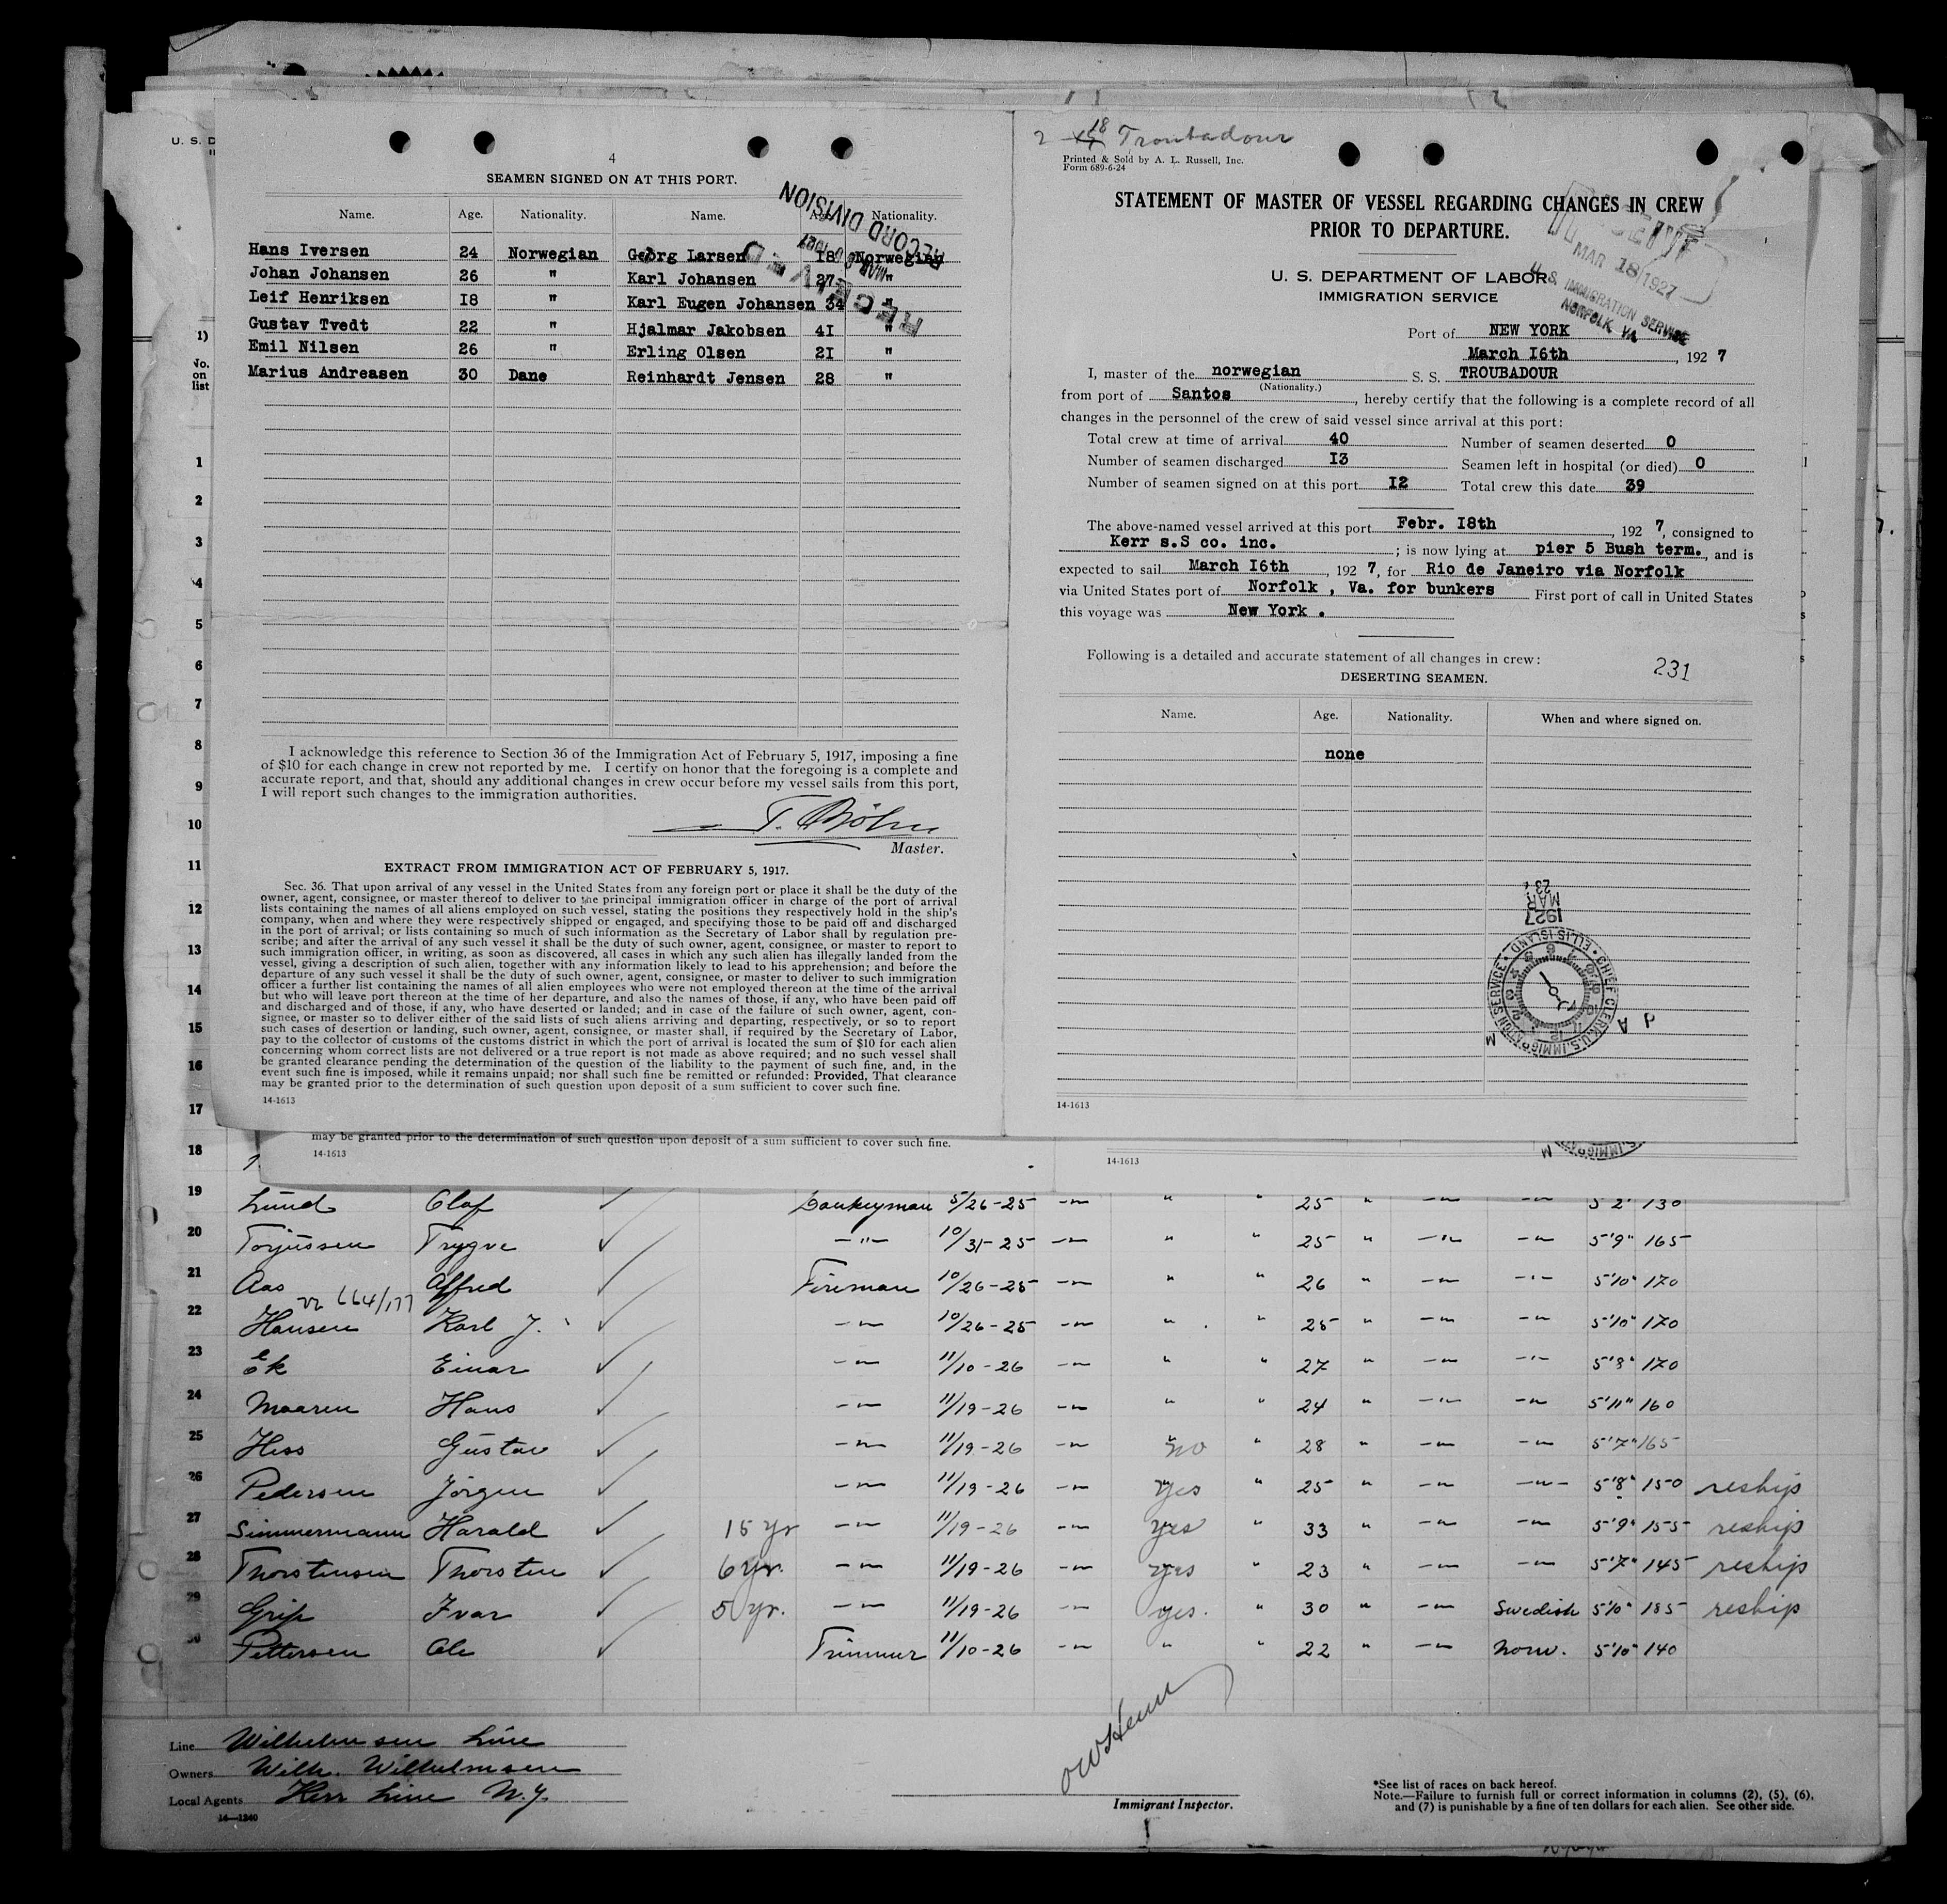 U. S. D
4
SEAMEN SIGNED ON AT THIS PORT.
Name. Age. Nationality. Name. Age. Nationality.
Hans Iversen 24 Norwegian Georg Larsen 18 Norwegian
Johan Johansen 26 " Karl Johansen 27 "
Leif Henriksen I8 " Karl Eugen Johansen 34 "
Gustav Tvedt 22 " Hjalmar Jakobsen 4I "
Emil Nilsen 26 " Erling Olsen 2I "
Marius Andreasen 30 Dane Reinhardt Jensen 28 "
RECEIVED
MAR 1927
RECORD DIVISION
I acknowledge this reference to Section 36 of the Immigration Act of February 5, 1917, imposing a fine
of $10 for each change in crew not reported by me. I certify on honor that the foregoing is a complete and
accurate report, and that, should any additional changes in crew occur before my vessel sails from this port,
I will report such changes to the immigration authorities.
Master.
EXTRACT FROM IMMIGRATION ACT OF FEBRUARY 5, 1917.
Sec. 36. That upon arrival of any vessel in the United States from any foreign port or place it shall be the duty of the
owner, agent, consignee, or master thereof to deliver to the principal immigration officer in charge of the port of arrival
lists containing the names of all aliens employed on such vessel, stating the positions they respectively hold in the ship's
company, when and where they were respectively shipped or engaged, and specifying those to be paid off and discharged
in the port of arrival; or lists containing so much of such information as the Secretary of Labor shall by regulation pre-
scribe; and after the arrival of any such vessel it shall be the duty of such owner, agent, consignee, or master to report to
such immigration officer, in writing, as soon as discovered, all cases in which any such alien has illegally landed from the
vessel, giving a description of such alien, together with any information likely to lead to his apprehension; and before the
departure of any such vessel it shall be the duty of such owner, agent, consignee, or master to deliver to such immigration
officer a further list containing the names of all alien employees who were not employed thereon at the time of the arrival
but who will leave port thereon at the time of her departure, and also the names of those, if any, who have been paid off
and discharged and of those, if any, who have deserted or landed; and in case of the failure of such owner, agent, con-
signee, or master so to deliver either of the said lists of such aliens arriving and departing, respectively, or so to report
such cases of desertion or landing, such owner, agent, consignee, or master shall, if required by the Secretary of Labor,
pay to the collector of customs of the customs district in which the port of arrival is located the sum of $10 for each alien
concerning whom correct lists are not delivered or a true report is not made as above required; and no such vessel shall
be granted clearance pending the determination of the question of the liability to the payment of such fine, and, in the
event such fine is imposed, while it remains unpaid; nor shall such fine be remitted or refunded: Provided, That clearance
may be granted prior to the determination of such question upon deposit of a sum sufficient to cover such fine.
14-1613
2 18 Troubadour
Printed & Sold by A. L. Russell, Inc.
Form 689-6-24
STATEMENT OF MASTER OF VESSEL REGARDING CHANGES IN CREW
PRIOR TO DEPARTURE.
MAR 18 1927
U. S. IMMIGRATION SERVICE
NORFOLK VA
U. S. DEPARTMENT OF LABOR
IMMIGRATION SERVICE
Port of NEW YORK
March I6th, 192 7
I, master of the norwegian S. S. TROUBADOUR
(Nationality.)
from port of Santos, hereby certify that the following is a complete record of all
changes in the personnel of the crew of said vessel since arrival at this port:
Total crew at time of arrival 40 Number of seamen deserted 0
Number of seamen discharged I3 Seamen left in hospital (or died) 0
Number of seamen signed on at this port I2 Total crew this date 39
The above-named vessel arrived at this port Febr. I8th, 192 7, consigned to
Kerr s.S co. inc. ; is now lying at pier 5 Bush term., and is
expected to sail March I6th, 192 7, for Rio de Janeiro via Norfolk
via United States port of Norfolk , Va. for bunkers First port of call in United States
this voyage was New York .
Following is a detailed and accurate statement of all changes in crew:
231
DESERTING SEAMEN.
Name. Age. Nationality. When and where signed on.
none
1927
MAR 23
CHIEF CLERK, U.S. IMMIGRATION SERVICE ELLIS ISLAND
14-1613
1)
No.
on
list
1
2
3
4
5
6
7
8
9
10
11
12
13
14
15
16
17
18
may be granted prior to the determination of such question upon deposit of a sum sufficient to cover such fine.
14-1613
14-1613
19 Lund Olaf Donkeyman 5/26-25 -"- " " 25 " -"- -"- 5'2" 130
20 Torjussen Trygve -"- 10/31-25 -"- " " 25 " -"- -"- 5'9" 165
21 Aas Alfred Fireman 10/26-25 -"- " " 26 " -"- -"- 5'10" 170
664/177
22 Hansen Karl J. -"- 10/26-25 -"- " " 25 " -"- -"- 5'10" 170
23 Ek Einar -"- 11/10-26 -"- " " 27 " -"- -"- 5'8" 170
24 Maaren Hans -"- 11/19-26 -"- " " 24 " -"- -"- 5'11" 160
25 Hess Gustav -"- 11/19-26 -"- no " 28 " -"- -"- 5'7" 165
26 Pedersen Jörgen -"- 11/19-26 -"- yes " 25 " -"- -"- 5'8" 150 reship
27 Simmermann Harald 15 yr -"- 11/19-26 -"- yes " 33 " -"- -"- 5'9" 155 reship
28 Thorstensen Thorsten 6 yr. -"- 11/19-26 -"- yes " 23 " -"- -"- 5'7" 145 reship
29 Grip Ivar 5 yr. -"- 11/19-26 -"- yes. " 30 " -"- Swedish 5'10" 185 reship
30 Pettersen Ole Trimmer 11/10-26 -"- " " 22 " -"- Norw. 5'10" 140
Line Wilhelmsen Line
Owners Wilh. Wilhelmsen
Local Agents Kerr Line N.Y.
14-1240
Immigrant Inspector.
*See list of races on back hereof.
Note.—Failure to furnish full or correct information in columns (2), (5), (6),
and (7) is punishable by a fine of ten dollars for each alien. See other side.